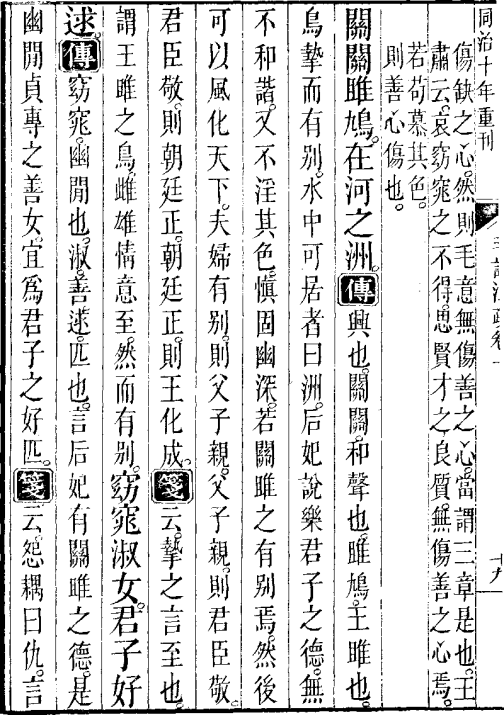 同治十年重刊
毛詩注疏卷一
十九
傷缺之心。然則毛意無傷善之心。當謂三章是也。王
肅云。哀窈窕之不得。思賢才之良質。無傷善之心焉。
若苟慕其色。
則善心傷也。
關關雎鳩。在河之洲。傳興也。關關。和聲也。雎鳩。王雎也。
鳥摯而有別。水中可居者曰洲。后妃說樂君子之德。無
不和諧。又不淫其色。愼固幽深。若關雎之有別焉。然後
可以風化天下。夫婦有別。則父子親。父子親。則君臣敬。
君臣敬。則朝廷正。朝廷正。則王化成。箋云。摯之言至也。
謂王雎之鳥。雌雄情意至。然而有別。窈窕淑女。君子好
逑。傳窈窕。幽閒也。淑。善。逑。匹也。言后妃有關雎之德。是
幽閒貞專之善女。宜爲君子之好匹。箋云。怨耦曰仇。言